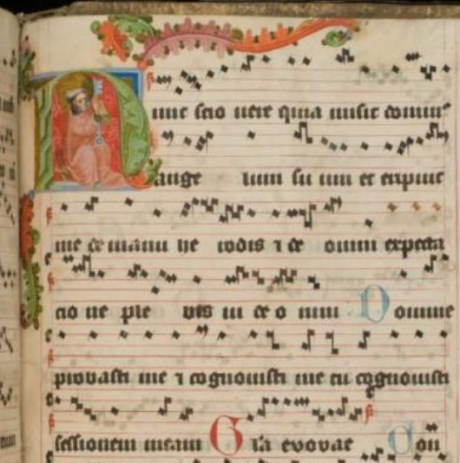 Nunc scio uere quia misit domin⁹
ange lum su um et eripuit
me de manu he rodis ⁊ de omni expecta
cio ne ple bis iu de o rum Domine
probasti me ⁊ cognouisti me tu cognouisti
sessionem meam Gla evovae Con